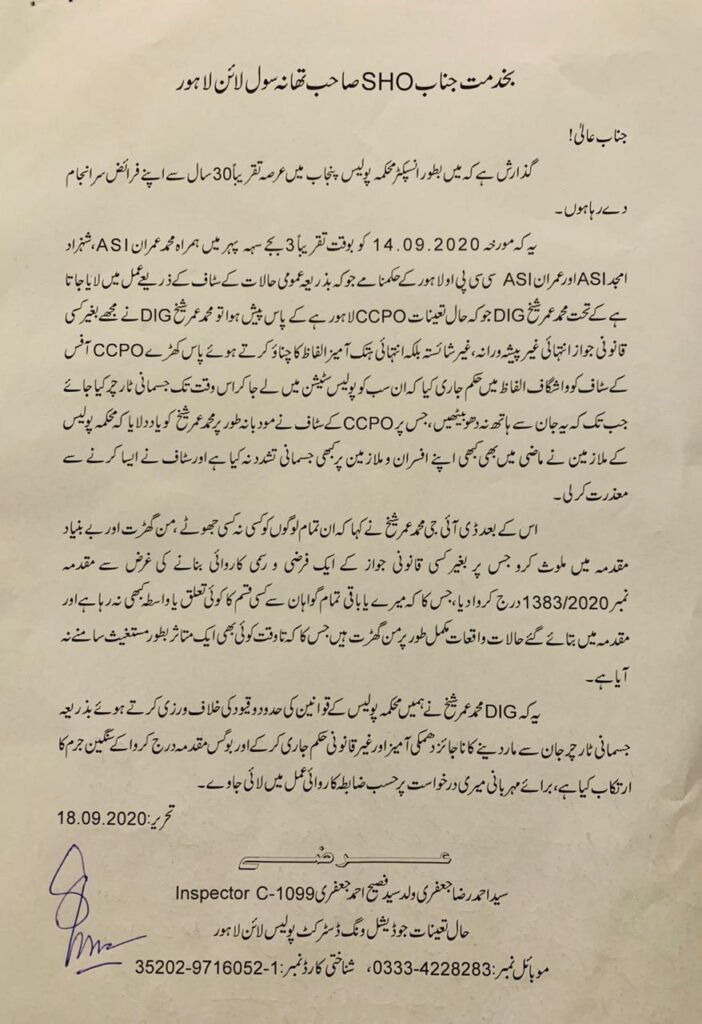 بخدمت جناب SHO صاحب تھانہ سول لائن لاہور
جناب عالیٰ!
گذارش ہے کہ میں بطور انسپکٹر محکمہ پولیس پنجاب میں عرصہ تقریباً 30 سال سے اپنے فرائض سرانجام
دے رہا ہوں۔
یہ کہ مورخہ 14.09.2020 کو بوقت تقریباً 3 بجے سہہ پہر میں ہمراہ محمد عمران ASI، شہزاد
امجد ASI اور عمران ASI سی سی پی او لاہور کے حکمنامے جو کہ بذریعہ عمومی حالات کے سٹاف کے ذریعے عمل میں لایا جاتا
ہے کے تحت محمد عمر شیخ DIG جو کہ حال تعینات CCPO لاہور ہے کے پاس پیش ہوا تو محمد عمر شیخ DIG نے مجھے بغیر کسی
قانونی جواز انتہائی غیر پیشہ ورانہ، غیر شائستہ بلکہ انتہائی ہتک آمیز الفاظ کا چناؤ کرتے ہوئے پاس کھڑے CCPO آفس
کے سٹاف کو واشگاف الفاظ میں حکم جاری کیا کہ ان سب کو پولیس سٹیشن میں لے جا کر اس وقت تک جسمانی ٹارچر کیا جائے
جب تک کہ یہ جان سے ہاتھ نہ دھو بیٹھیں، جس پر CCPO کے سٹاف نے مودبانہ طور پر محمد عمر شیخ کو یاد دلایا کہ محکمہ پولیس
کے ملازمین نے ماضی میں بھی کبھی اپنے افسران و ملازمین پر کبھی جسمانی تشدد نہ کیا ہے اور سٹاف نے ایسا کرنے سے
معذرت کر لی۔
اس کے بعد ڈی آئی جی محمد عمر شیخ نے کہا کہ ان تمام لوگوں کو کسی نہ کسی جھوٹے، من گھڑت اور بے بنیاد
مقدمہ میں ملوث کرو جس پر بغیر کسی قانونی جواز کے ایک فرضی و رسمی کاروائی بنانے کی غرض سے مقدمہ
نمبر 1383/2020 درج کروا دیا، جس کا کہ میرے یا باقی تمام گواہان سے کسی قسم کا کوئی تعلق یا واسطہ کبھی نہ رہا ہے اور
مقدمہ میں بتائے گئے حالات واقعات مکمل طور پر من گھڑت ہیں جس کا کہ تا وقت کوئی بھی ایک متاثر بطور مستغیث سامنے نہ
آیا ہے۔
یہ کہ DIG محمد عمر شیخ نے ہمیں محکمہ پولیس کے قوانین کی حدود و قیود کی خلاف ورزی کرتے ہوئے بذریعہ
جسمانی ٹارچر جان سے مار دینے کا ناجائز دھمکی آمیز اور غیر قانونی حکم جاری کر کے اور بوگس مقدمہ درج کروا کے سنگین جرم کا
ارتکاب کیا ہے، برائے مہربانی میری درخواست پر حسب ضابطہ کاروائی عمل میں لائی جاوے۔
تحریر: 18.09.2020
عرضے
سید احمد رضا جعفری ولد سید فصیح احمد جعفری Inspector C-1099
حال تعینات جوڈیشل ونگ ڈسٹرکٹ پولیس لائن لاہور
موبائل نمبر: 0333-4228283، شناختی کارڈ نمبر: 35202-9716052-1